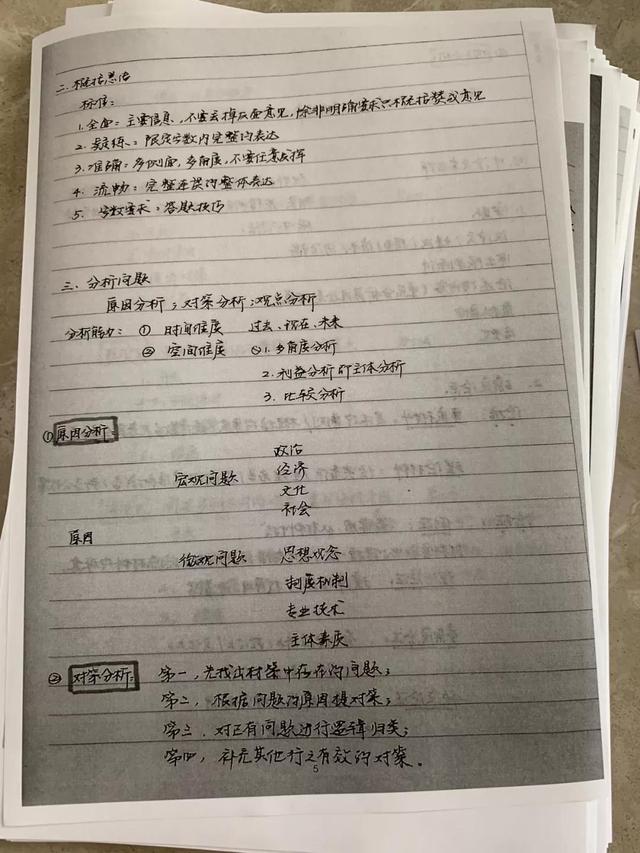 二. 概括总结
标准:
1. 全面: 主要信息, 不要去掉反面意见, 除非明确要求只概括赞成意见
2. 凝练: 限定字数内完整的表达
3. 准确: 多侧面, 多角度, 不要任意发挥
4. 流畅: 完整连贯的整体表达
5. 字数要求: 答题技巧
三. 分析问题
原因分析; 对策分析; 观点分析
分析能力: ① 时间维度 过去、现在、未来
② 空间维度 1. 多角度分析
2. 利益分析即主体分析
3. 比较分析
① 原因分析:
政治
宏观问题 经济
文化
社会
原因
微观问题 思想观念
制度机制
专业技术
主体素质
② 对策分析: 第一, 先找出材料中存在的问题;
第二, 根据问题的原因提对策;
第三, 对已有问题进行逻辑归类;
第四, 补充其他行之有效的对策。
5